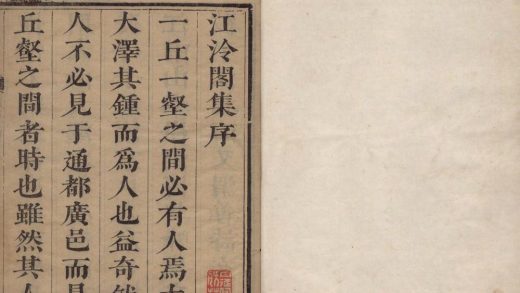 江泠閣集序
一丘一壑之間必有人焉
大澤其鍾而爲人也益奇然
人不必見于通都廣邑而見
丘壑之間者時也雖然其人